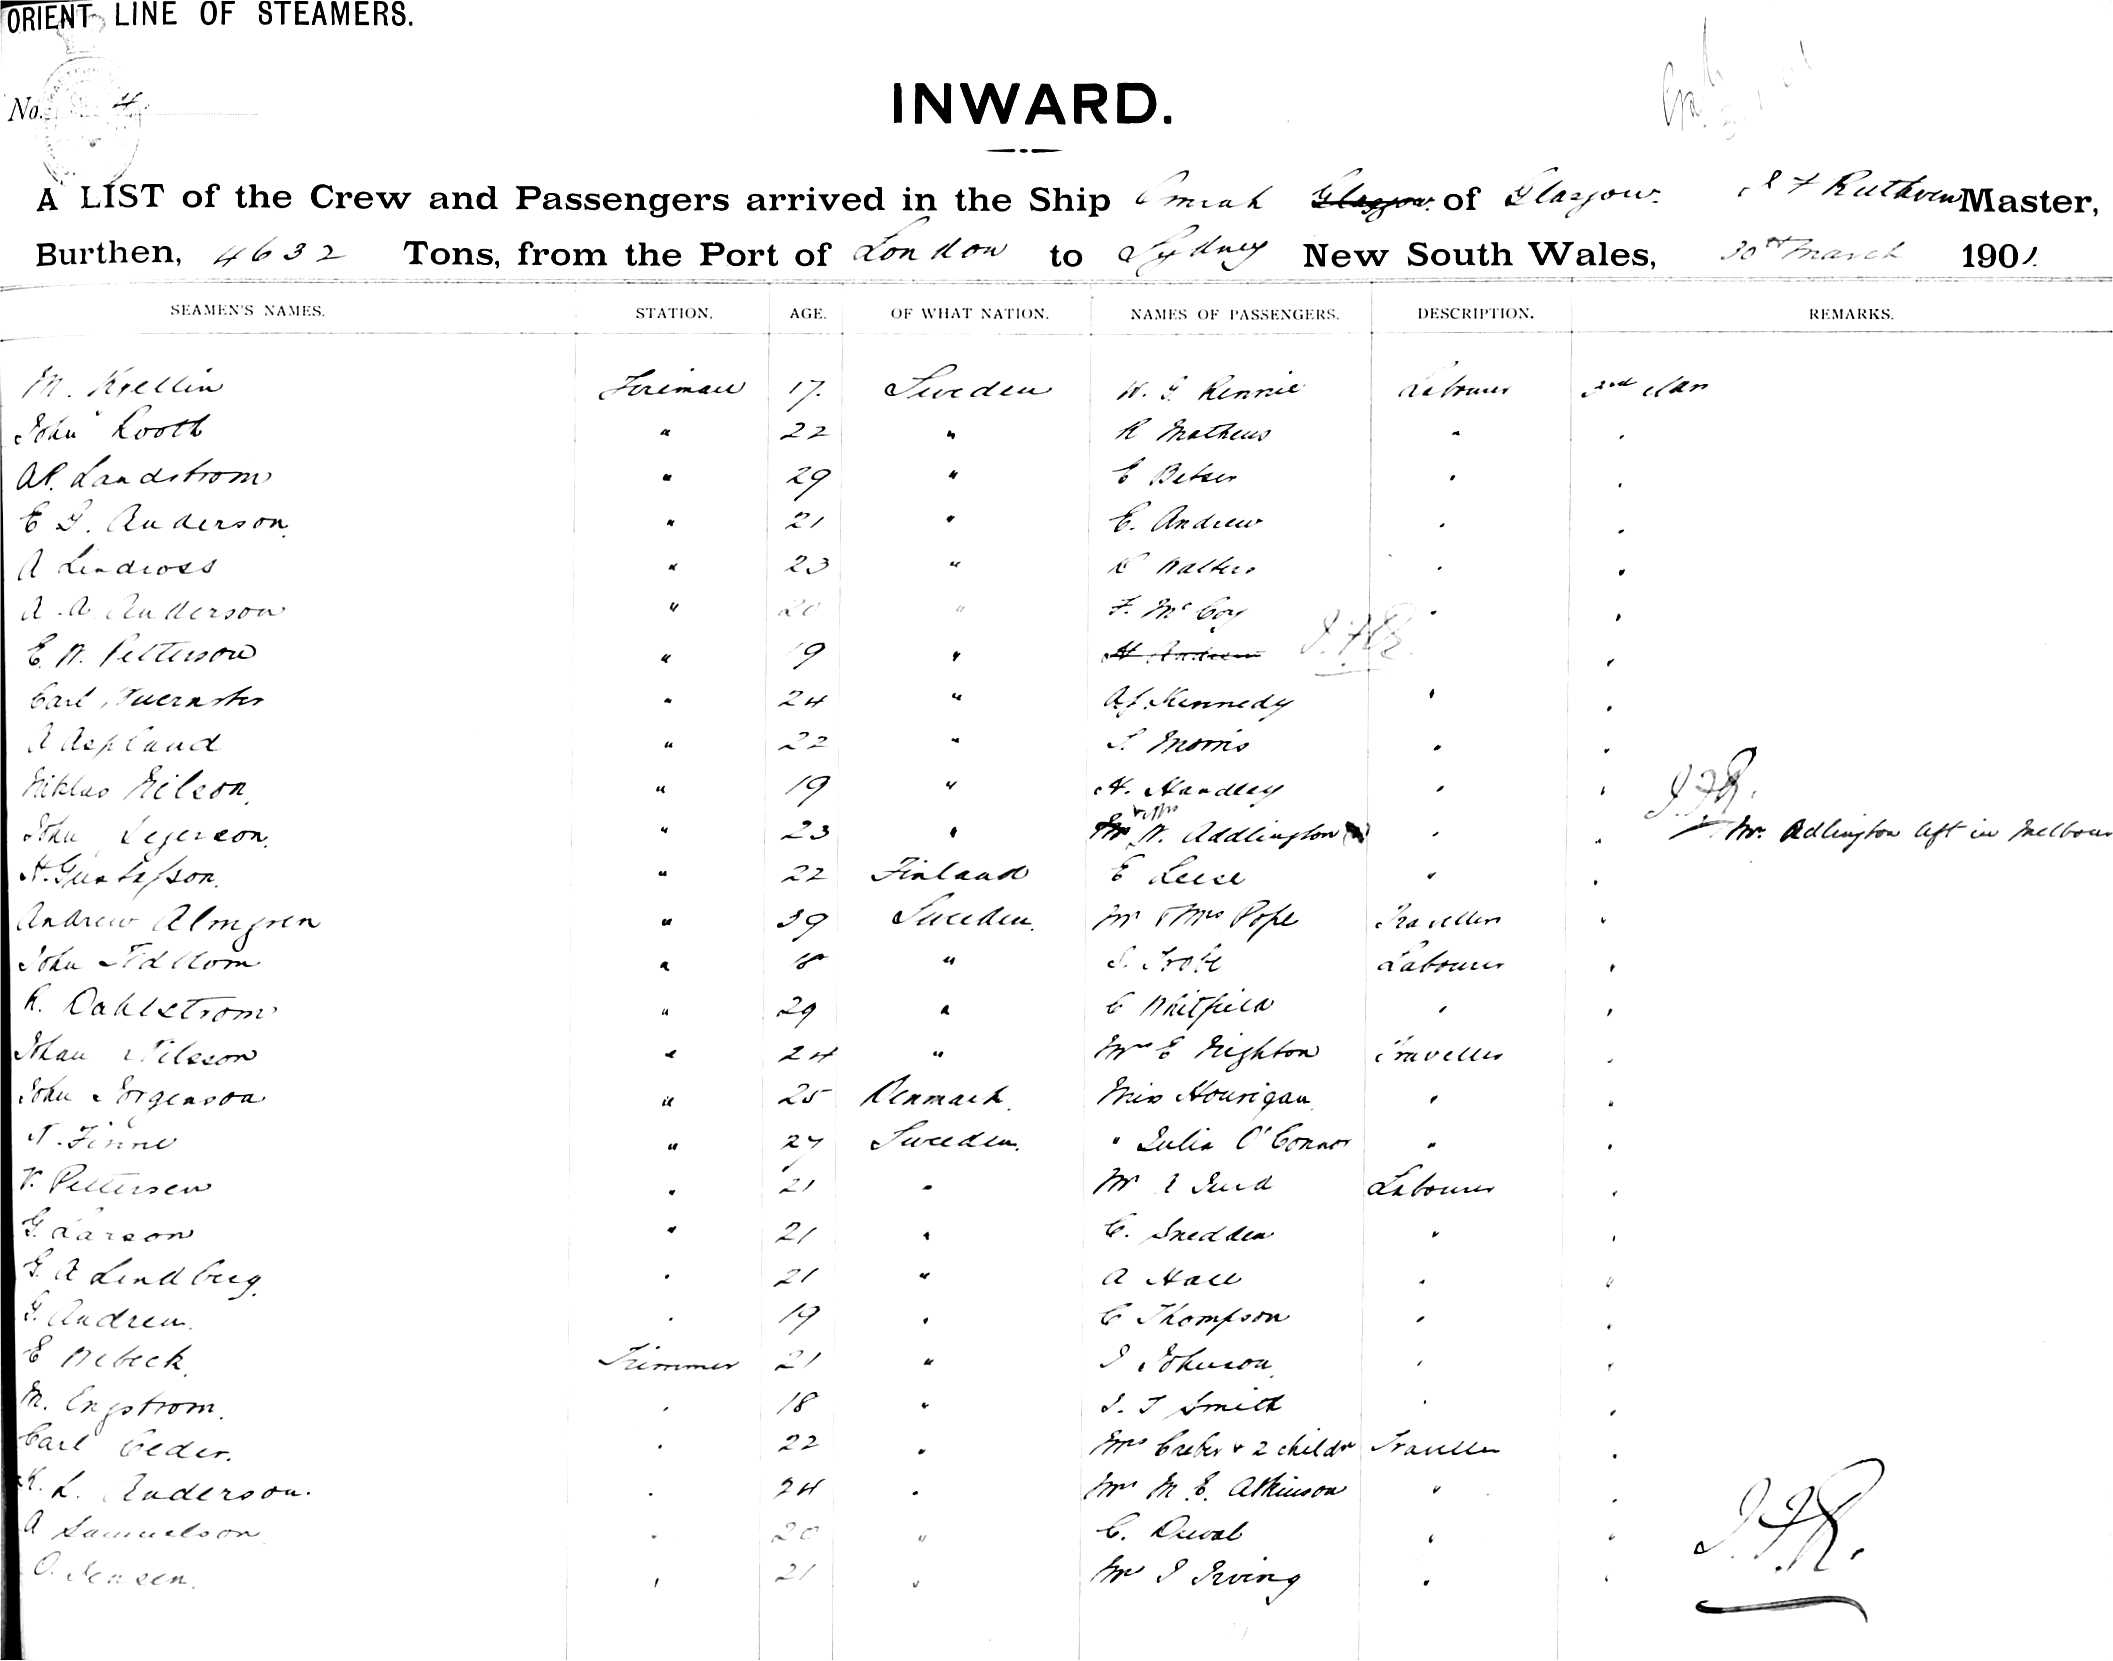 ORIENT LINE OF STEAMERS.
No. 4
INWARD.
A LIST of the Crew and Passengers arrived in the Ship Omrah Glasgow of Glasgow. J F Ruthven Master,
Burthen, 4632 Tons, from the Port of London to Sydney New South Wales, 30th March 1901.
SEAMEN'S NAMES. STATION. AGE. OF WHAT NATION. NAMES OF PASSENGERS. DESCRIPTION. REMARKS.
M. Krellin Fireman 17. Sweden W. G. Rennie Labourer 3rd class
John Rooth " 22 " R Mathews " "
A P. Landstrom " 29 " E Betser " "
E G. Anderson. " 21 " E. Andrew " "
A Lindross " 23 " R Walters " "
A. A. Anderson " 20 " F. McCoy " "
E. W. Petterson " 19 " H Andrew J.F.R. "
Carl " 24 " A J. Kennedy " "
A Aspland " 22 " S. Morris " "
Niklas Nilson. " 19 " H. Handley " " J.F.R.
John Segerson. " 23 " W. Addlington " " Mr. Adlington left in Melbour
H. Gustafson. " 22 Finland E Leese " "
Andrew Almgren " 39 Sweden. Mr & Mrs Pope Travellers "
John " 18 " S. Labourer "
K. Dahlstrom " 29 " C Whitfield " "
Johan Nilsson " 24 " Mrs E Nighton Traveller "
John Jorgenson " 25 Denmark. Miss Hourigan " "
N. Finne " 27 Sweden. " Julia O'Connor " "
V. Pettersen " 21 " Mr Labourer "
G. Larson " 21 " C. Snedden " "
G. A Lindberg. " 21 " A Hall " "
G. Andrew. " 19 " C Thompson " "
E Wibeck. Trimmer 21 " J Johnson. " "
M. Engstrom. " 18 " J. T Smith " "
Carl Ceder. " 22 " Mrs & 2 childn Traveller "
K. L. Anderson. " 24 " Mrs M. E. Atkinson " "
A Samuelson " 20 " C. Duval " " J.F.R.
O. Jensen. " 21 " Mr J Irving " "